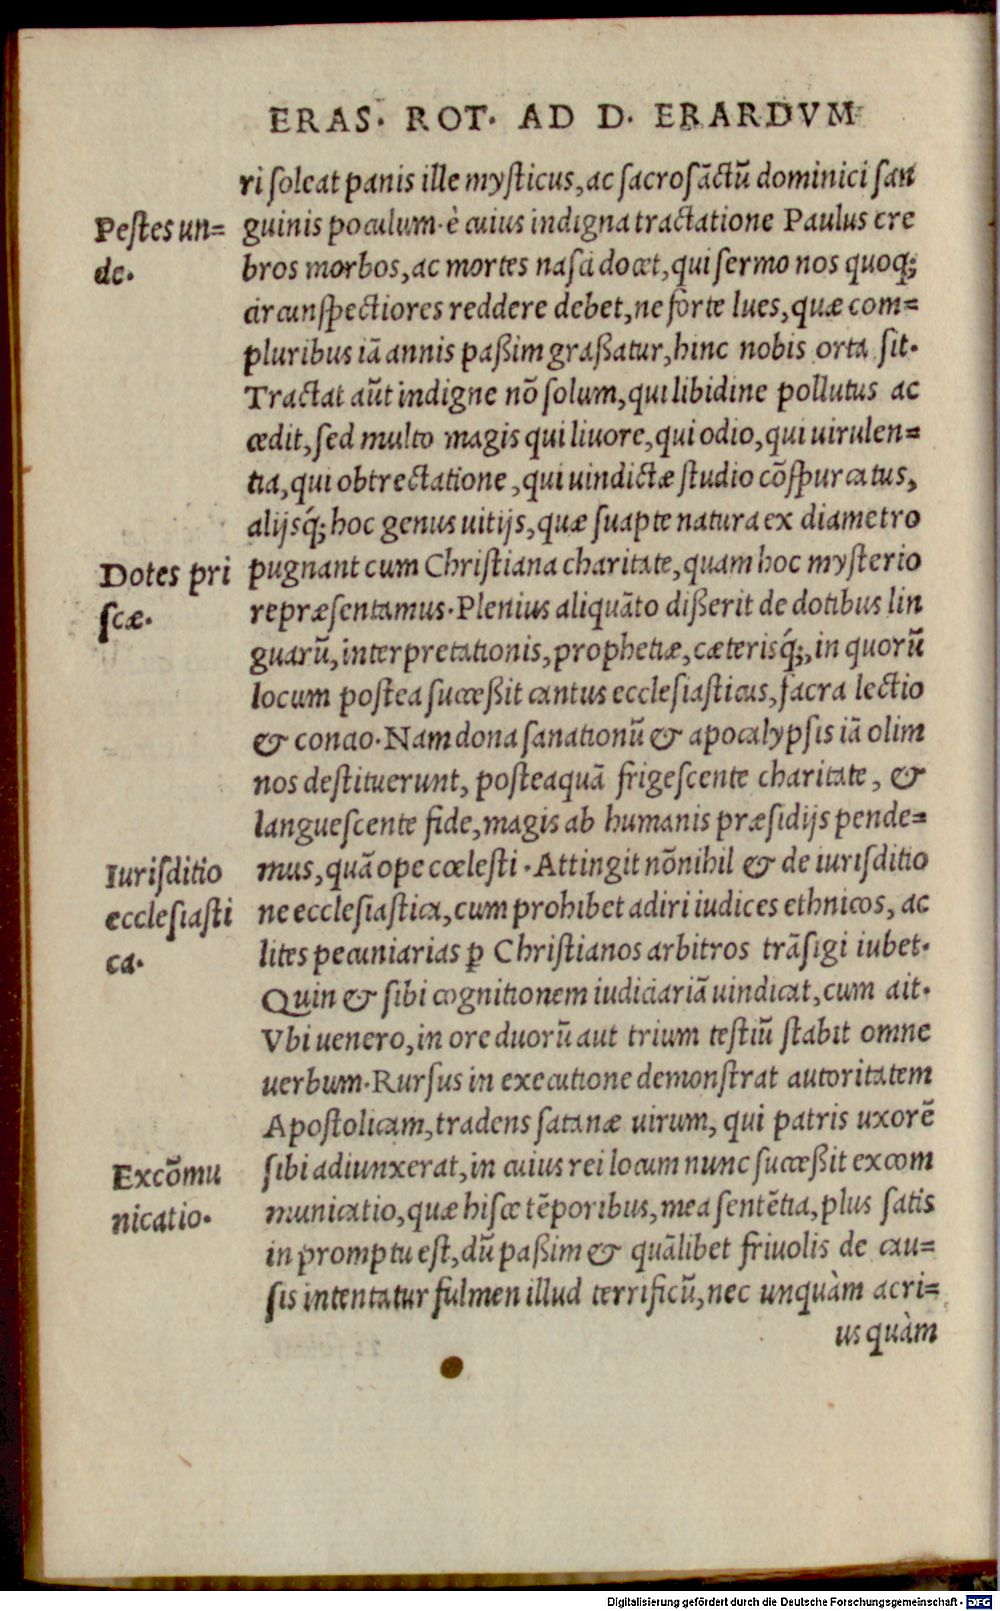 ERAS. ROT. AD D. ERARDVM
ri soleat panis ille mysticus, ac sacrosãctũ dominici san
Pestes un=
de.
guinis poculum. è cuius indigna tractatione Paulus cre
bros morbos, ac mortes nasci docet, qui sermo nos quoq;
circunspectiores reddere debet, ne forte lues, quæ com=
pluribus iã annis paßim graßatur, hinc nobis orta sit.
Tractat aũt indigne nõ solum, qui libidine pollutus ac
cedit, sed multo magis qui liuore, qui odio, qui uirulen=
tia, qui obtrectatione, qui uindictæ studio cõspurcatus,
alijsq́; hoc genus uitijs, quæ suapte natura ex diametro
Dotes pri
scæ.
pugnant cum Christiana charitate, quam hoc mysterio
repræsentamus. Plenius aliquãto dißerit de dotibus lin
guarũ, interpretationis, prophetiæ, cæterisq́;, in quorũ
locum postea succeßit cantus ecclesiasticus, sacra lectio
& concio. Nam dona sanationũ & apocalypsis iã olim
nos destituerunt, posteaquã frigescente charitate, &
languescente fide, magis ab humanis præsidijs pende=
Iurisditio
ecclesiasti
ca.
mus, quã ope cœlesti. Attingit nõnihil & de iurisditio
ne ecclesiastica, cum prohibet adiri iudices ethnicos, ac
lites pecuniarias ꝑ Christianos arbitros trãsigi iubet.
Quin & sibi cognitionem iudiciariã uindicat, cum ait.
Vbi uenero, in ore duorũ aut trium testiũ stabit omne
uerbum. Rursus in executione demonstrat autoritatem
Apostolicam, tradens satanæ uirum, qui patris uxorẽ
Excõmu
nicatio.
sibi adiunxerat, in cuius rei locum nunc succeßit excom
municatio, quæ hisce tẽporibus, mea sentẽtia, plus satis
in promptu est, dũ paßim & quãlibet friuolis de cau=
sis intentatur fulmen illud terrificũ, nec unquàm acri=
us quàm
Digitalisierung gefördert durch die Deutsche Forschungsgemeinschaft - DFG